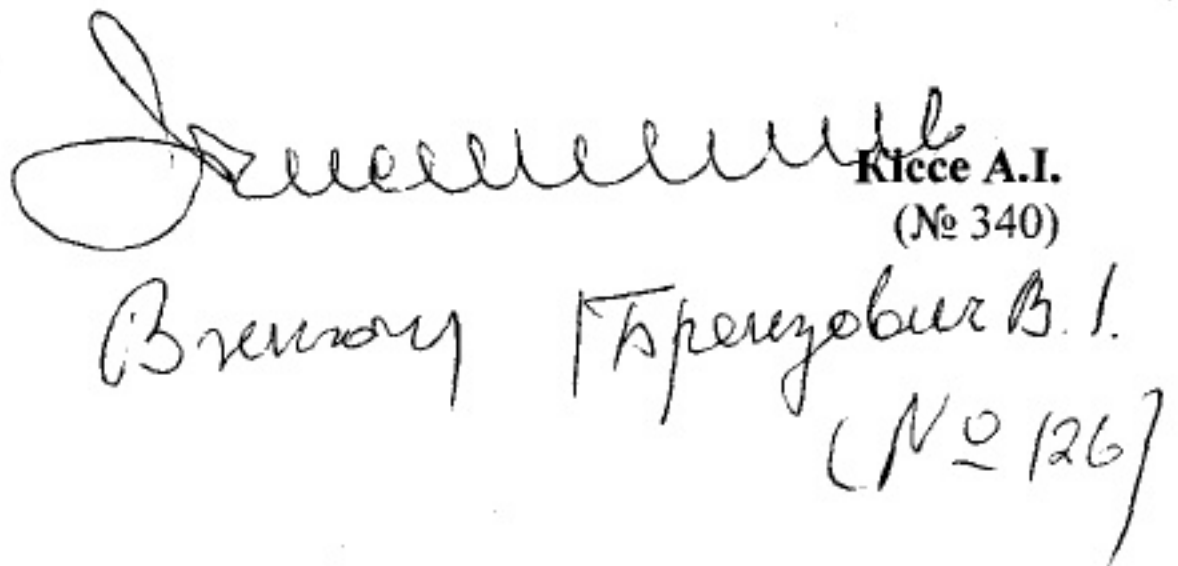 Кіссе А.І.
(№ 340)
Брензович В.І.
(№ 126)